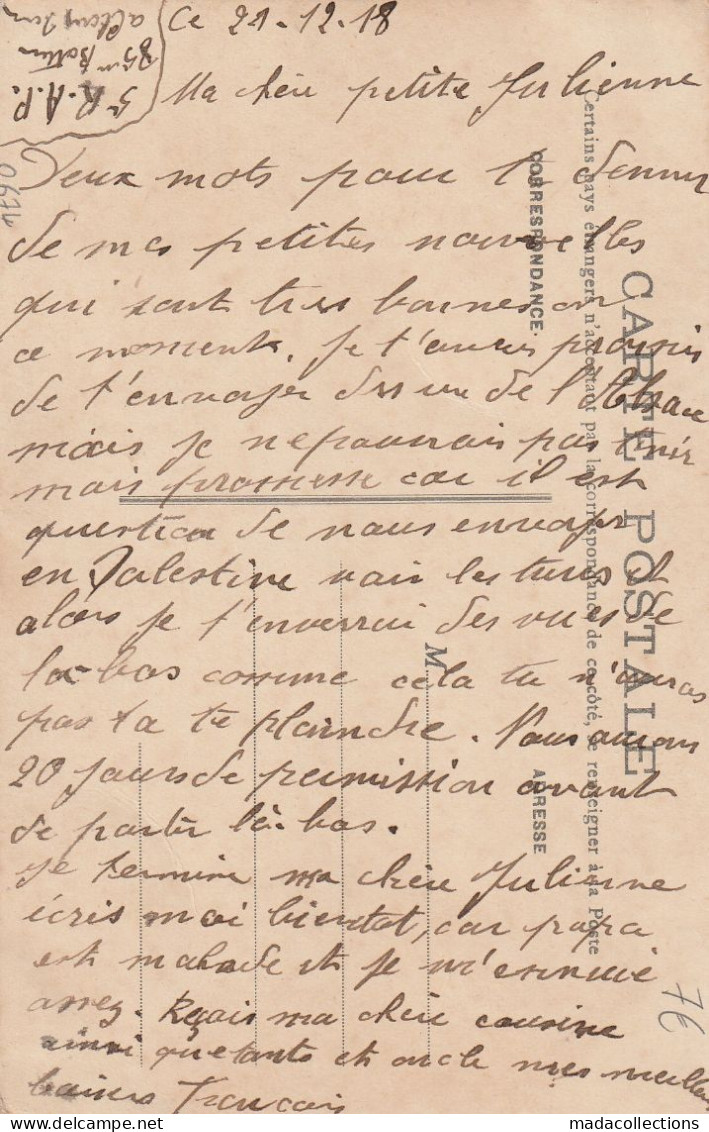 Ce 21-12-18
5e R.A.P.
85em Batterie
Ma chère petite Julienne
Deux mots pour te donner
de mes petites nouvelles
qui sont tres bonnes en
ce moment. Je t'avais promis
de t'envoyer des vue de l'Alsace
mais je ne pourrais pas tenir
mais promesse car il est
question de nous envoyer
en Palestine voir les turcs et
alors je t'enverrai des vues de
la-bas comme cela tu n'auras
pas ta te plaindre. Nous aurons
20 Jours de permission avant
de partir là-bas.
Je termine ma chère Julienne
écris moi bientot, car papa
est malade et je m'ennuie
assez. Reçois ma chère cousine
ainsi que tante et oncle mes meilleurs
baisers Francois
CARTE POSTALE
Certains pays étrangers n'acceptant pas la correspondance de ce côté, se renseigner à la Poste
CORRESPONDANCE.
ADRESSE
M
76
0974
madacollections.com